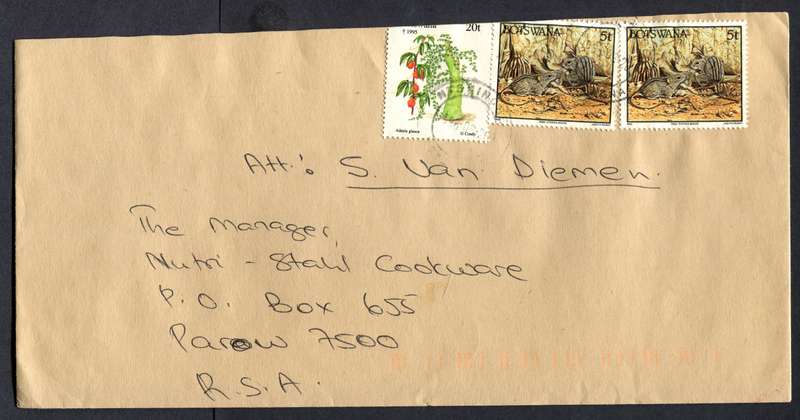 20t
† 1995
Adenia glauca
BOTSWANA 5t
BOTSWANA 5t
Att: S. Van Diemen.
The Manager,
Nutri - Stahl Cookware
P.O. Box 655
Parow 7500
R.S.A.